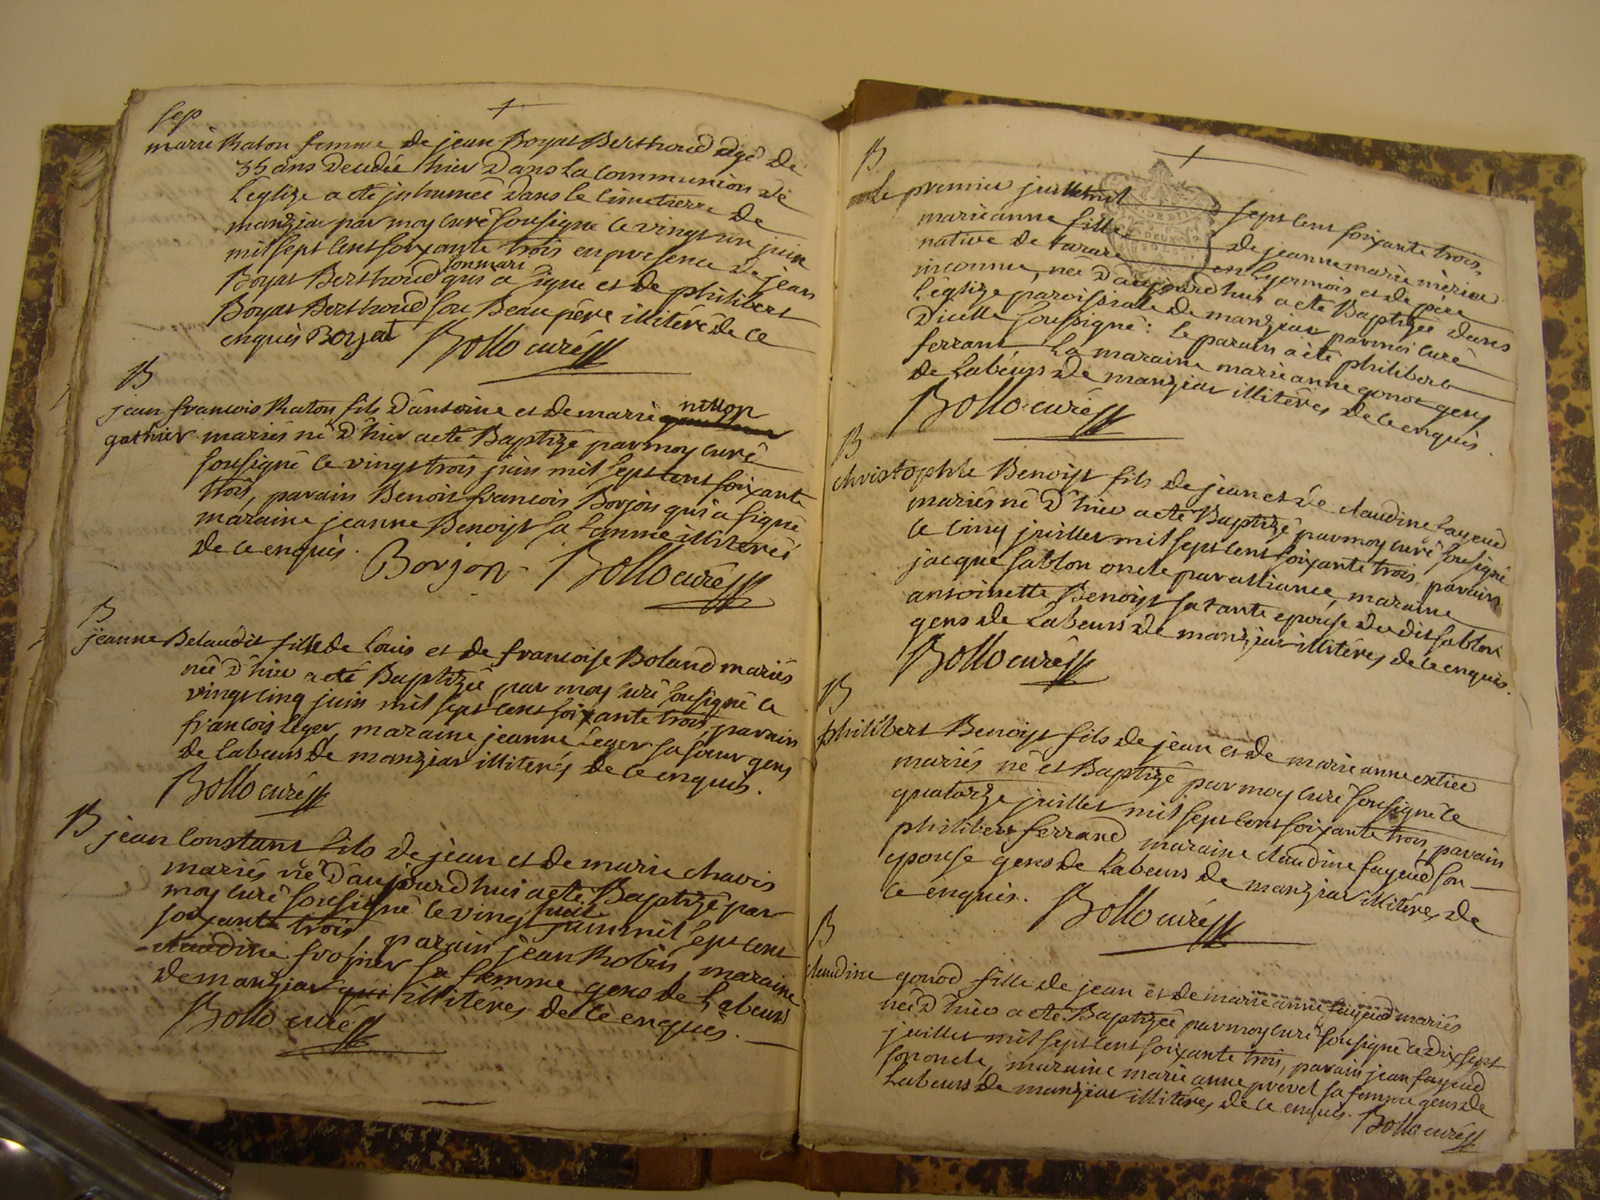 Sep
marie Raton femme de jean Boyat Berthoud agé de
35 ans decedée hier dans la communion de
l'eglize a eté inhumée dans le cimetierre de
manziat par moy curé sousigné le vingt un juin
mil sept cent soixante trois en presence de jean
Boyat Berthoud son mari qui a signé et de philibert
Boyat Berthoud son Beau pére illitéré de ce
enquis Boyat Bollo curé
B
jean francois Raton fils d'antoine et de marie nitton
gathier mariés né d'hier a eté Baptizé par moy curé
sousigné le vingt trois juin mil sept cent soixante
trois, parain Benoit francois Borjon qui a signé
maraine jeanne Benoist sa femme illiterés
de ce enquis. Borjon Bollo curé
B
jeanne Belaudit fille de louis et de francoise Boland mariés
née d'hier a eté Baptizée par moy curé sousigné le
vingt cinq juin mil sept cent soixante trois, parain
francois leger, maraine jeanne leger sa sœur gens
de labeurs de manziat illiterés de ce enquis.
Bollo curé
B
jean Constant fils de jean et de marie chavis
mariés né d'aujourd'hui a eté Baptizé par
moy curé sousigné le vingt huit juin mil sept cent
soixante trois, parain jean Robin, maraine
claudine frosier sa femme gens de labeurs
de manziat qui illitéres de ce enquis.
Bollo curé
B
le premier juillet mil sept cent soixante trois,
marie anne fille de jeanne marie mérieu
native de tarare en lyonnois et de pére
inconnu, née d'aujourd'hui a eté Baptizée dans
l'églize paroissiale de manziat par moi curé
d'icelle sousigné: le parain a été philibert
ferrant la maraine marie anne gonot gens
de labeurs de manziat illitéres de ce enquis.
Bollo curé
B
christophle Benoist fils de jean et de claudine fayeud
mariés né d'hier a eté Baptizé par moy curé sousigné
le cinq juillet mil sept cent soixante trois, parain
jacque sablon oncle par alliance, maraine
antoinette Benoist sa tante epouse du dit sablon
gens de labeurs de manziat illitéres de ce enquis.
Bollo curé
B
philibert Benoist fils de jean et de marie anne
mariés né et Baptizé par moy curé sousigné le
quatorze juillet mil sept cent soixante trois, parain
philibert ferrand maraine claudine fayeud son
epouse gens de labeurs de manziat illitéres de
ce enquis. Bollo curé
B
claudine gonod fille de jean et de marie anne fayeud mariés
née d'hier a eté Baptizée par moy curé sousigné le dix sept
juillet mil sept cent soixante trois, parain jean fayeud
son oncle, maraine marie anne prevel sa femme gens de
labeurs de manziat illitéres de ce enquis. Bollo curé